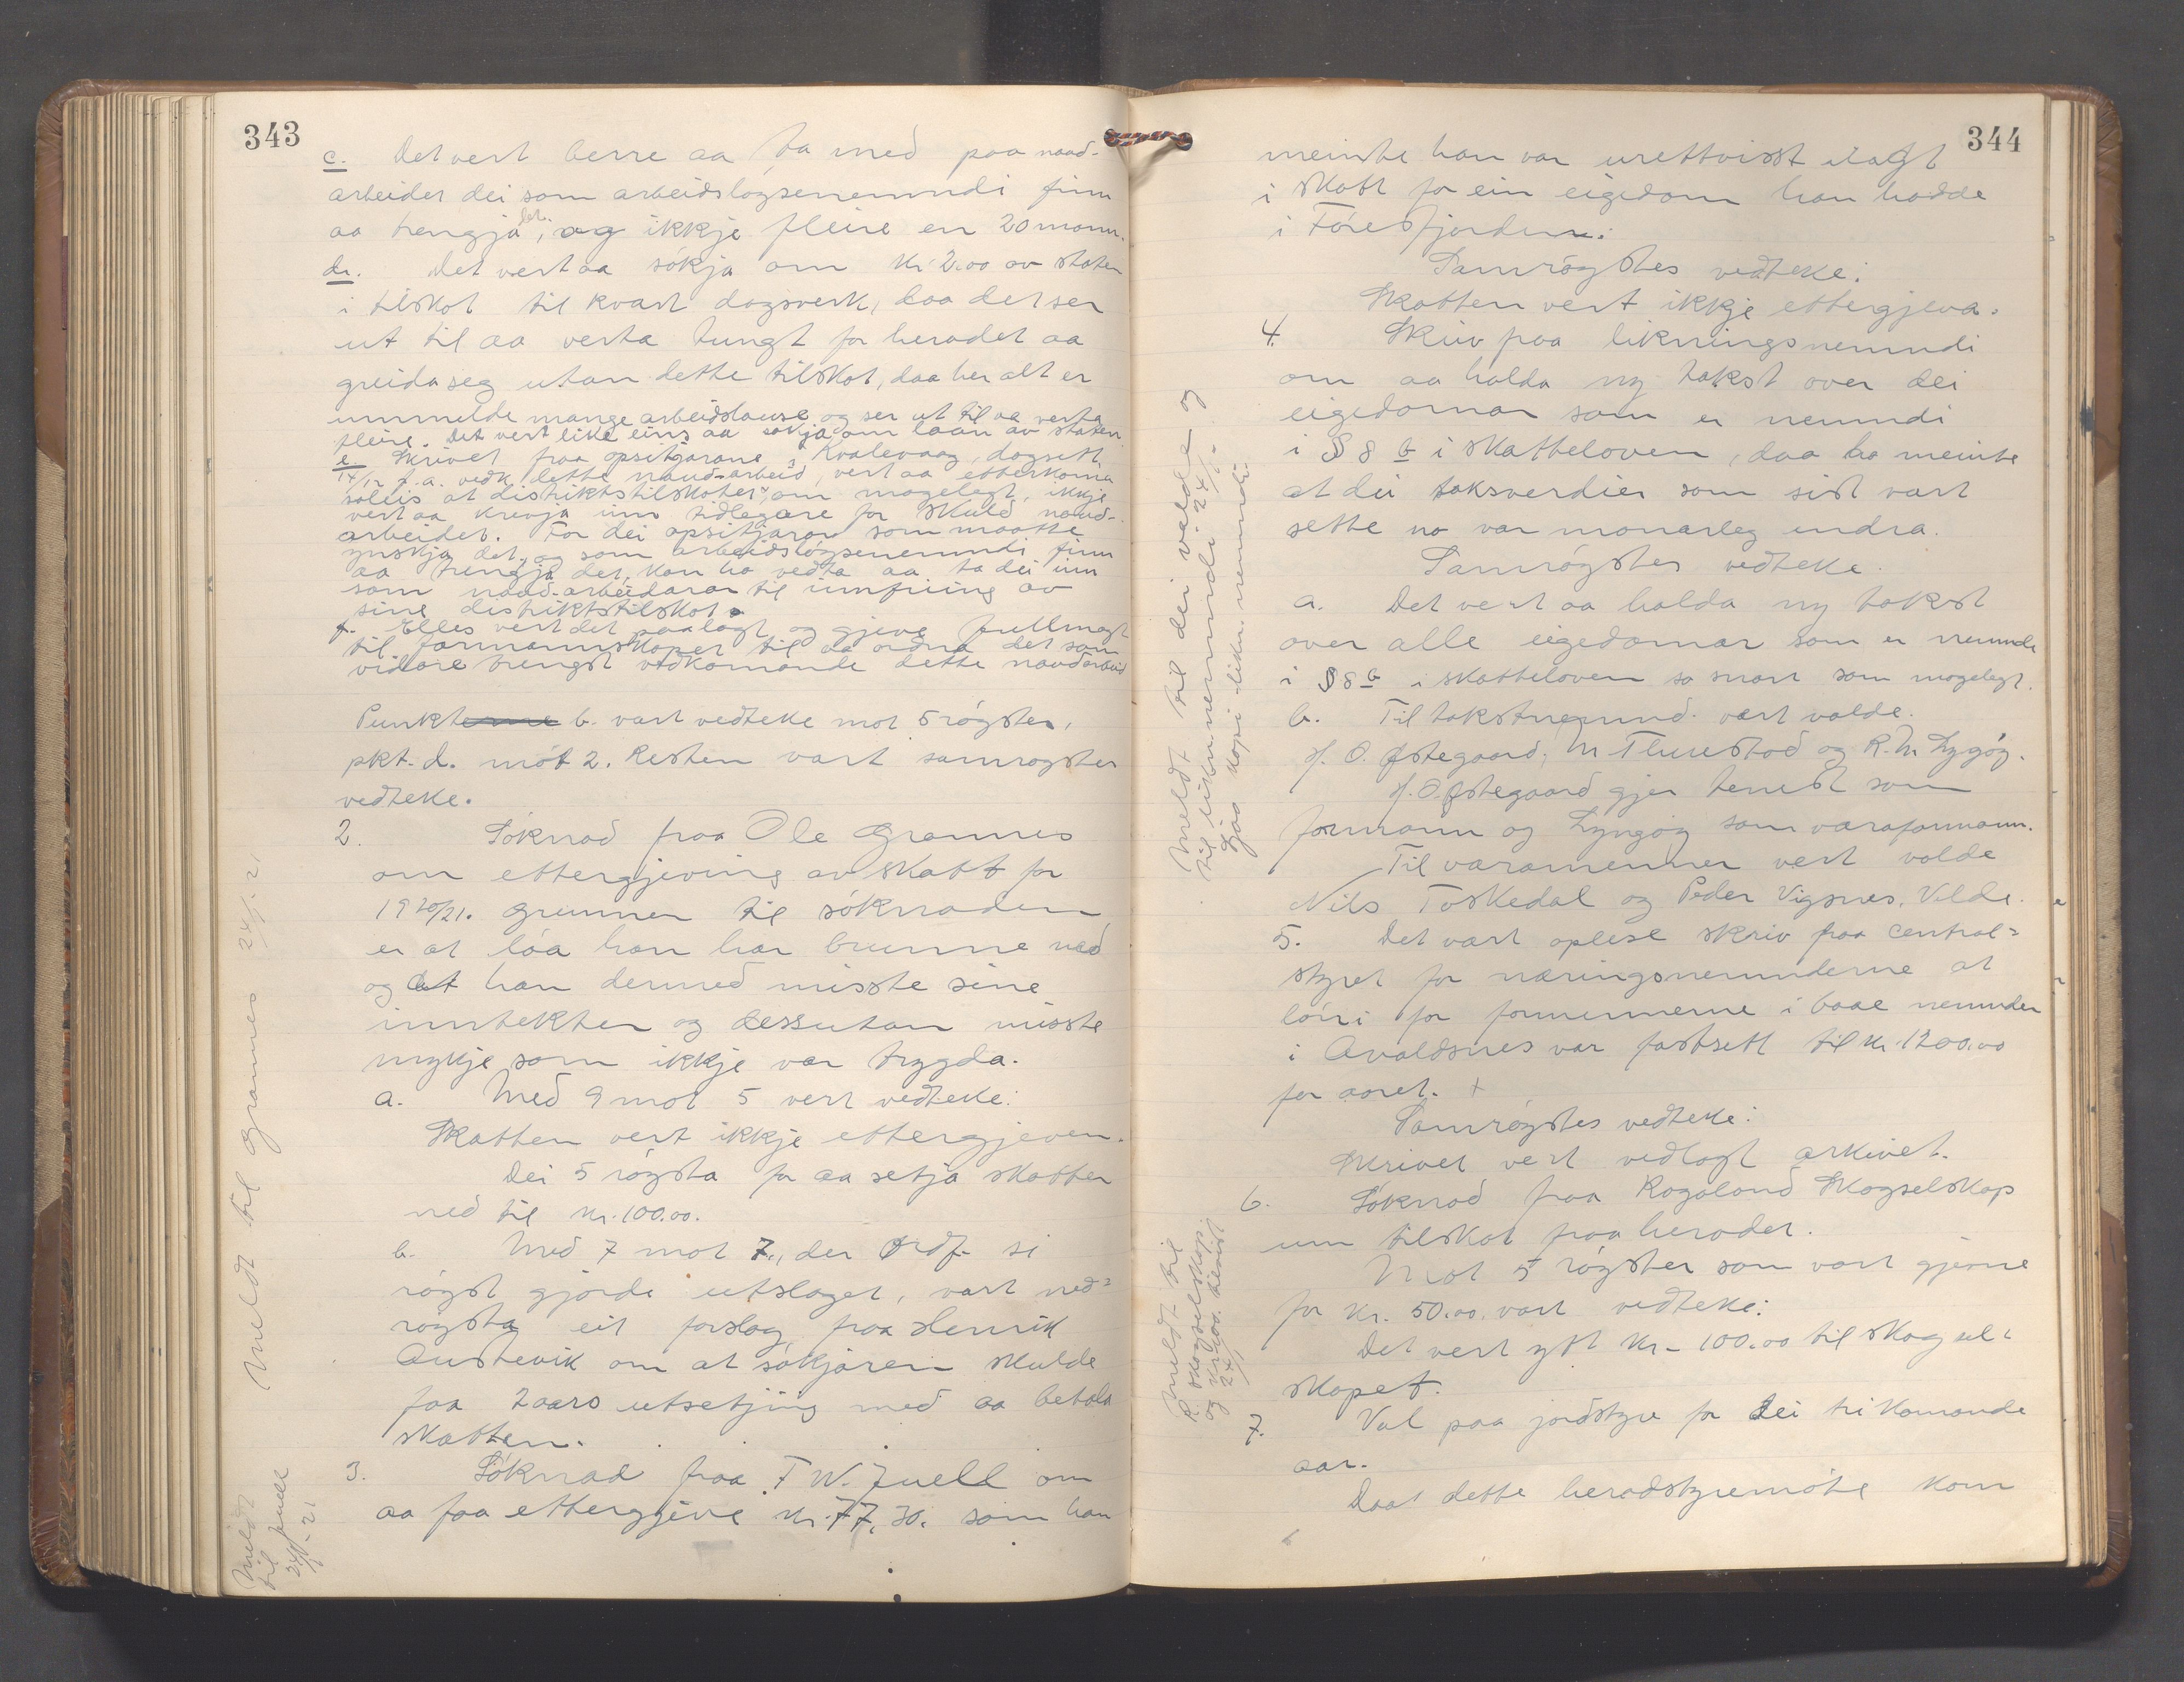 343
c. Det vert berre aa ta med paa naud-
arbeidet dei som arbeidsløysenemndi finn
aa trengja det, og ikkje fleire en 20 mann.
d. Det vert aa søkja om kr. 2.00 av staten
i tilskot til kvart dagsverk, daa det ser
ut til aa verta tungt for heradet aa
greida seg utan dette tilskot, daa her alt er
ummelde mange arbeidslause og ser ut til aa verta
fleire. Det vert like eins aa søkja om laan av staten.
e. Skrivet fraa opsitjarane i Kvalevaag, dagsett
14/12 f.a. vedk. dette naud-arbeid, vert aa etterkoma
soleis at distriktstilskotet, om mogelegt, ikkje
vert aa krevja inn tidlegare for skuld naud-
arbeidet. For dei opsitjarar som maatte
ynskja det, og som arbeidsløysenemndi finn
aa trengja det, kan ho vedta aa ta dei inn
som naud-arbeidarar til innfriing av
sine distriktstilskot.
f. Elles vert det paalagt og gjeve fullmagt
til formannskapet til aa ordna det som
vidare trengst vedkomande dette naudarbeid
Punkterne b. vart vedteke mot 5 røyster,
pkt. d. mot 2. Resten vart samrøystes
vedteke.
2. Søknad fraa Ole Grannes
om ettergjeving av skatt for
1920/21. Grunnen til søknaden
er at løa han har brunne ned
og at han dermed misste sine
inntekter og dessutan misste
mykje som ikkje var trygda.
a. Med 9 mot 5 vert vedteke:
Skatten vert ikkje ettergjeven.
Dei 5 røysta for aa setja skatten
ned til kr. 100.00.
b. Med 7 mot 7, der Ordf. si
røyst gjorde utslaget, vart ned-
røysta eit forslag fraa Henrik
Austevik om at søkjaren skulde
faa 2 aars utsetjing med aa betala
skatten.
3. Søknad fraa T. W. Juell om
aa faa ettergjeve kr. 77.30. som han
Meldt til Grannes 24/1-21
Meldt
til Juell
24/1-21
344
meinte han var urettvisst ilagt
i skatt for ein eigedom han hadde
i Føresfjorden.
Samrøystes vedteke:
Skatten vert ikkje ettergjeva.
4. Skriv fraa likningsnemndi
om aa halda ny takst over dei
eigedomar som er nemndi
i § 8 b i skatteloven, daa ho meinte
at dei taksverdier som sist vart
sette no var monarleg endra.
Samrøystes vedteke.
a. Det vert aa halda ny takst
over alle eigedomar som er nemnde
i § 8 b i skatteloven so snart som mogelegt.
b. Til takstnemnd vart valde.
H. O. Østegaard, M. Thurestad og R. M. Lygøy.
H. O. Østegaard gjer tenest som
formann og Lyngøy som varaformann.
Til varamenner vert valde
Nils Toskedal og Peder Vigsnes, Velde.
5. Det vart oplese skriv fraa central-
styret for næringsnemnderne at
løni for formennerne i baae nemnder
i Avaldsnes var fastsett til kr. 1200.00
for aaret. +
Samrøystes vedteke:
Skrivet vert vedlagt arkivet.
6. Søknad fraa Rogaland Skogselskap
um tilskot fraa heradet.
Mot 5 røyster som vart gjevne
for kr. 50.00 vart vedteke:
Det vert ytt kr. 100.00 til skogsel-
skapet.
7. Val paa jordstyre for dei tri komande
aar.
Daa dette heradstyremøte kom
Meldt til dei valde og
til likn.nemndi 24/1-
Sjaa kopi likn.nemndi.
Meldt til
R. skogselskap
24/1